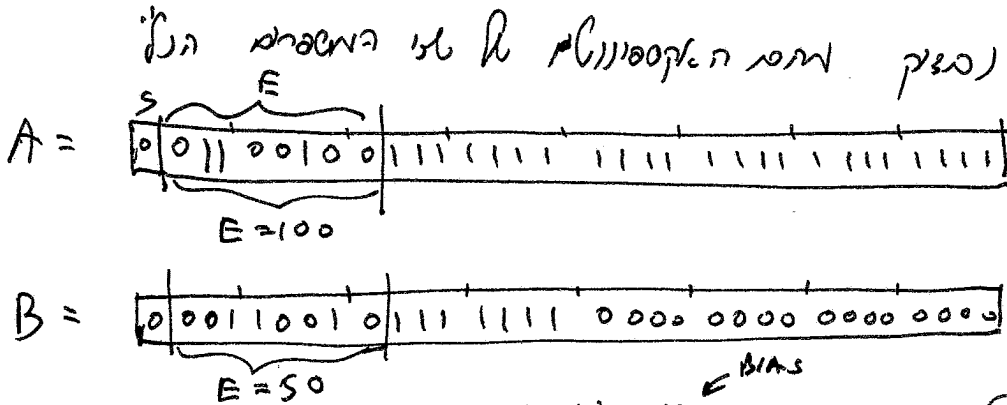 נבדוק מהם האקספוננטים של שני המספרים הנ"ל
S E
A = 0 0 11 00 1 0 0 111 1111 1111 1111 1111 1111
E = 100
B = 0 0 0 1 1 0 0 1 0 111 1111 0000 0000 0000 0000
E = 50
BIAS